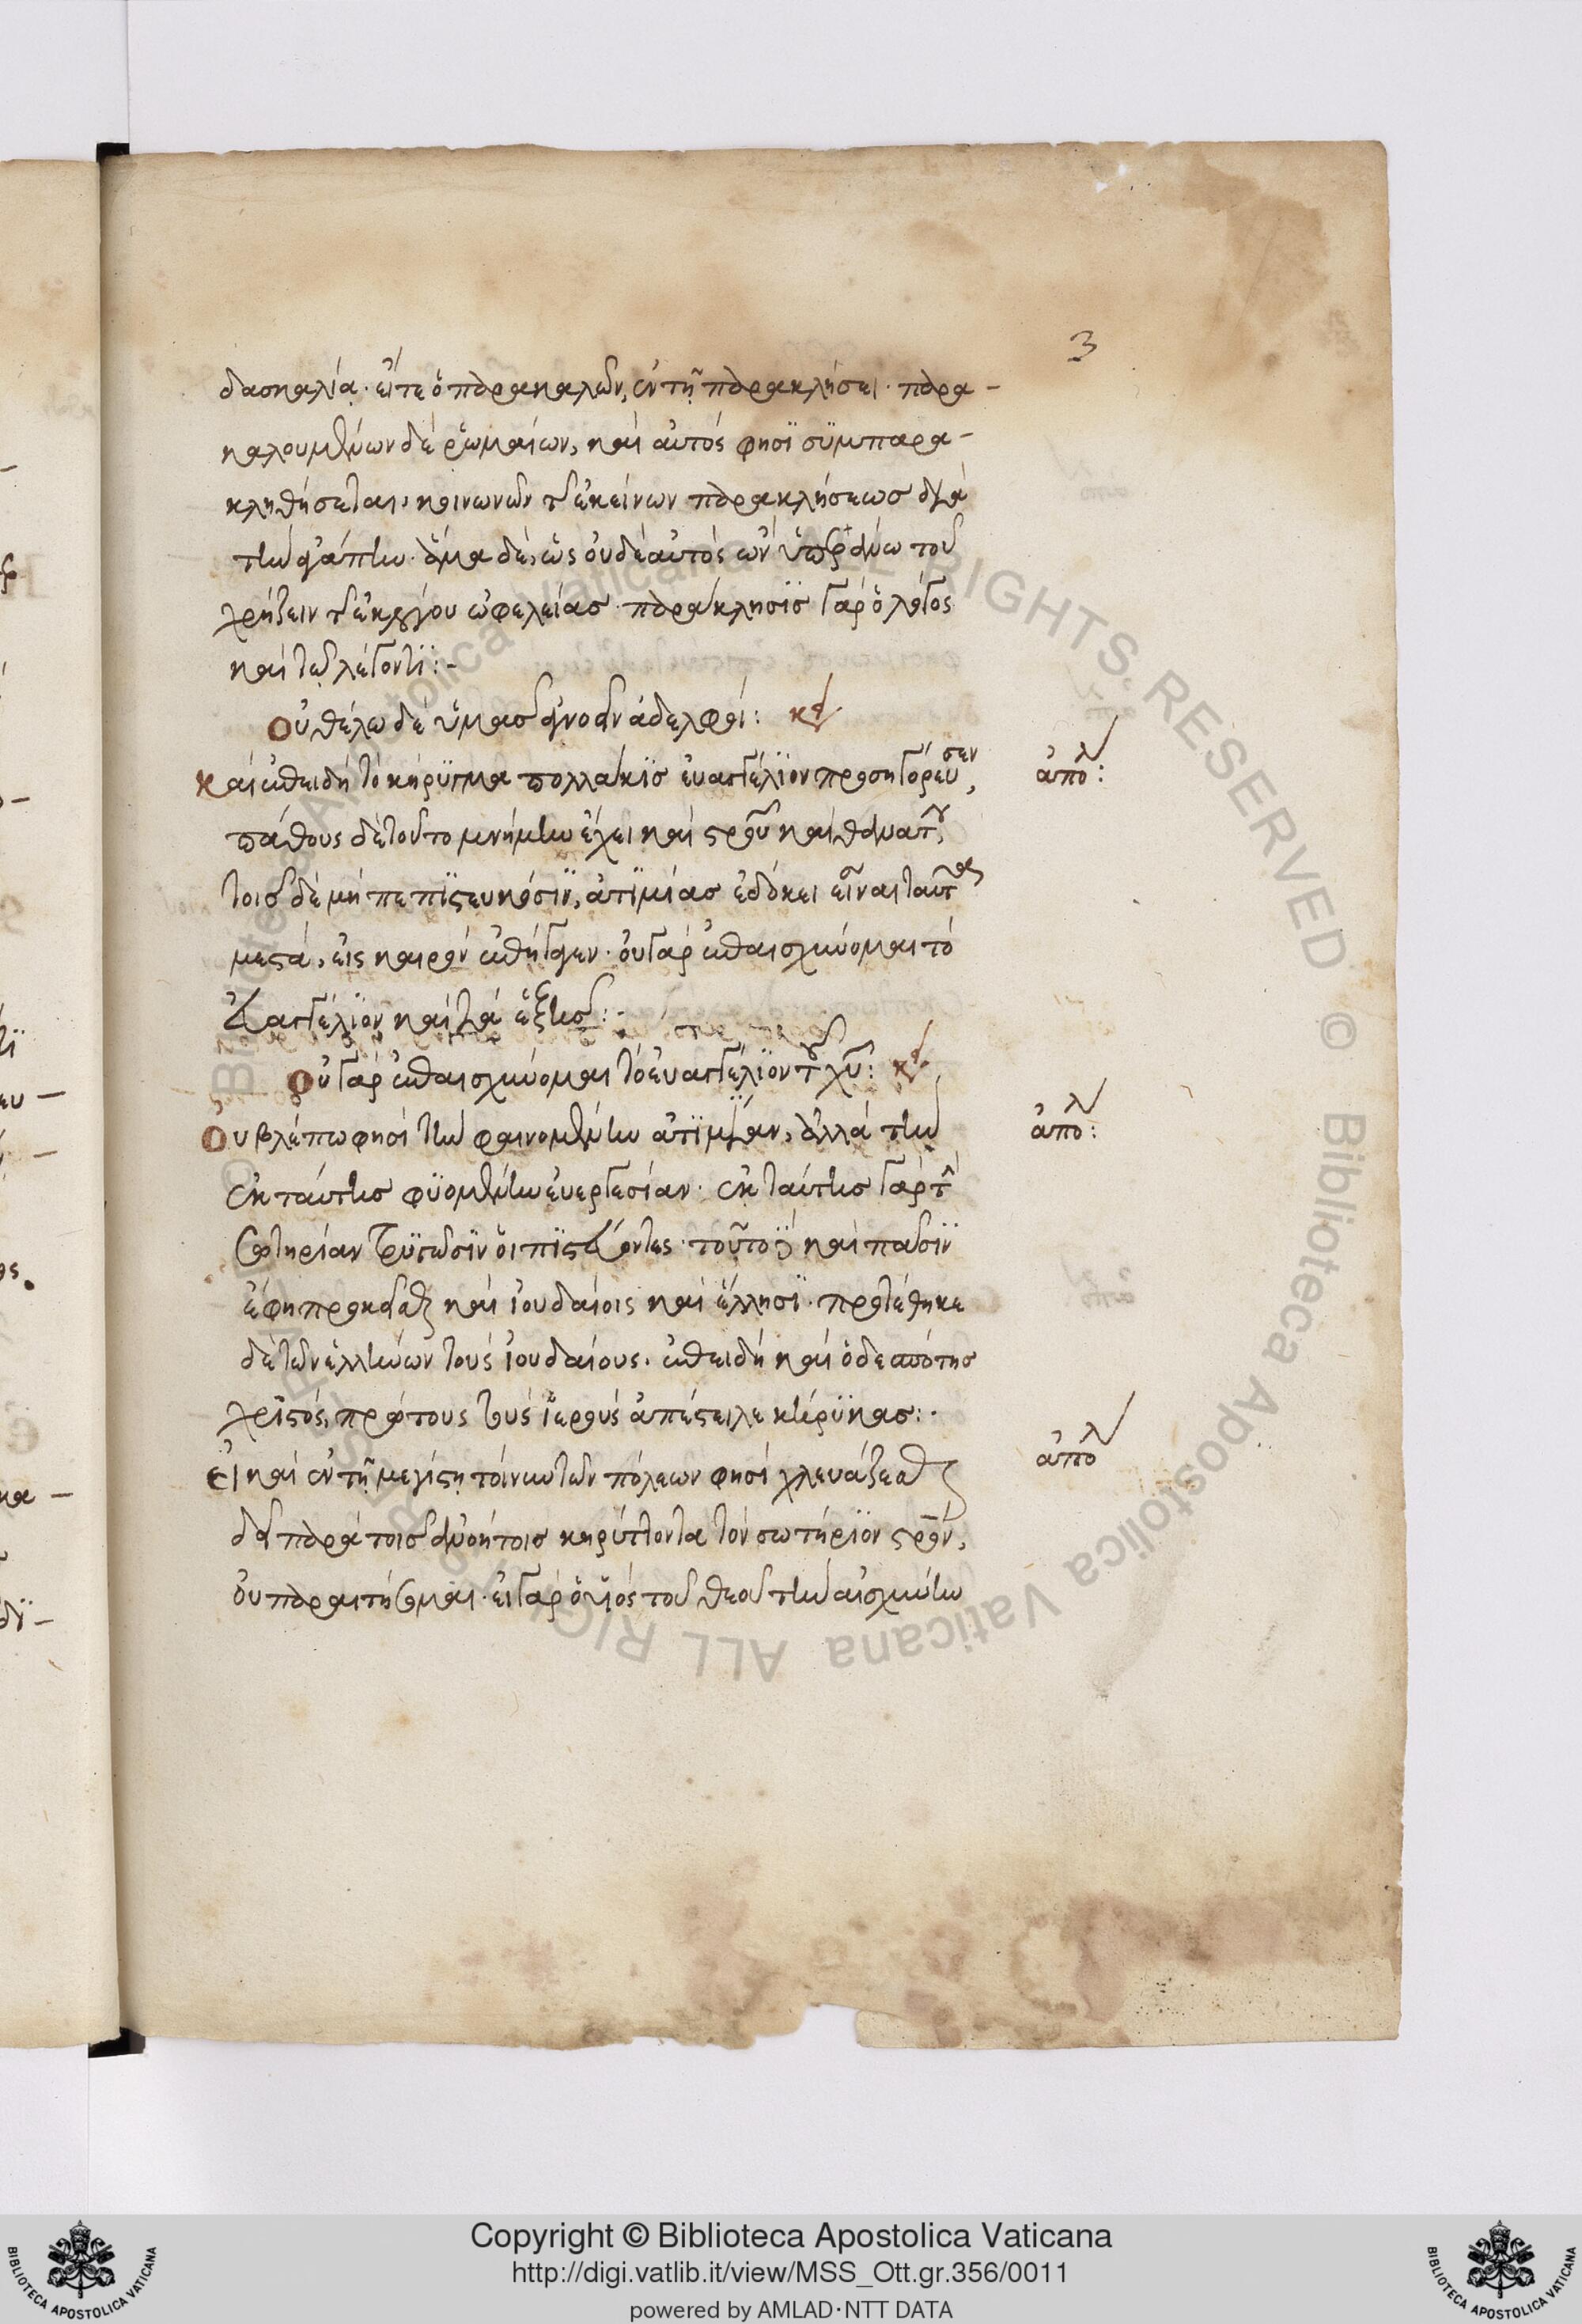 3
δασκαλία· εἴτε ὁ παρακαλῶν, ἐν τῇ παρακλήσει· παρα-
καλουμένων δὲ ῥωμαίων, καὶ αὐτός φησϊ συμπαρα-
κληθήσεται, κοινωνῶν τῆς ἐκείνων παρακλήσεως διὰ
τὴν ἀγάπην· ἅμα δὲ, ὡς οὐδὲ αὐτὸς ὢν ὑπεράνω τοῦ
χρήζειν τῆς ἐκ λόγου ὠφελείας· παράκλησϊς γὰρ ὁ λόγος
καὶ τῷ λέγοντϊ:-
Οὐ θέλω δὲ ὑμᾶς ἀγνοεῖν ἀδελφοί: κεί
Καὶ ἐπειδὴ τὸ κήρυγμα πολλάκϊς εὐαγγέλϊον προσηγόρευσεν, ἀπολ:
πάθους δὲ τοῦτο μνήμην ἔχει καὶ σταυροῦ καὶ θανάτου,
τοῖς δὲ μὴ πεπϊστευκόσϊν, ἀτϊμίας ἐδόκει εἶναι ταῦτα
μεστά, εἰς καιρὸν ἐπήγαγεν· οὐ γὰρ ἐπαισχύνομαι τὸ
εὐαγγέλϊον καὶ τὰ ἑξῆς:-
Οὐ γὰρ ἐπαισχύνομαι τὸ εὐαγγέλϊον τοῦ χυ: κεί
Οὐ βλέπω φησὶ τὴν φαινομένην ἀτϊμίαν, ἀλλὰ τὴν ἀπολ:
ἐκ ταύτης φϋομένην εὐεργεσίαν· ἐκ ταύτης γὰρ τὴν
σωτηρίαν τρϋγῶσϊν οἱ πϊστεύοντες· τοῦτο καὶ πᾶσϊν
ἔφη προκεῖσθαι καὶ ἰουδαίοις καὶ ἕλλησϊ· προτέθηκε
δὲ τῶν ἑλλήνων τοὺς ἰουδαίους· ἐπειδὴ καὶ ὁ δεσπότης
χρϊστός, πρώτους τοὺς ἱεροὺς ἀπέστειλε κήρϋκας:·
Εἰ καὶ ἐν τῇ μεγίστη τοίνυν τῶν πόλεων φησὶ χλευάζεσθαι ἀπολ
δεῖ παρὰ τοῖς ἀνοήτοις κηρύττοντα τὸν σωτήρϊον στρον,
οὐ παραιτήσομαι· εἰ γὰρ ὁ υἱὸς τοῦ θεοῦ τὴν αἰσχύνην
Copyright © Biblioteca Apostolica Vaticana
http://digi.vatlib.it/view/MSS_Ott.gr.356/0011
powered by AMLAD·NTT DATA